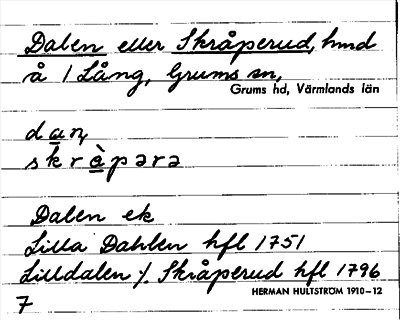 Dalen eller Skråperud, hmd
å 1 Lång, Grums sn,
Grums hd, Värmlands län
dan
skràpərə
Dalen ek
Lilla Dahlen hfl 1751
Lilldalen /. Skråperud hfl 1796
HERMAN HULTSTRÖM 1910–12
7